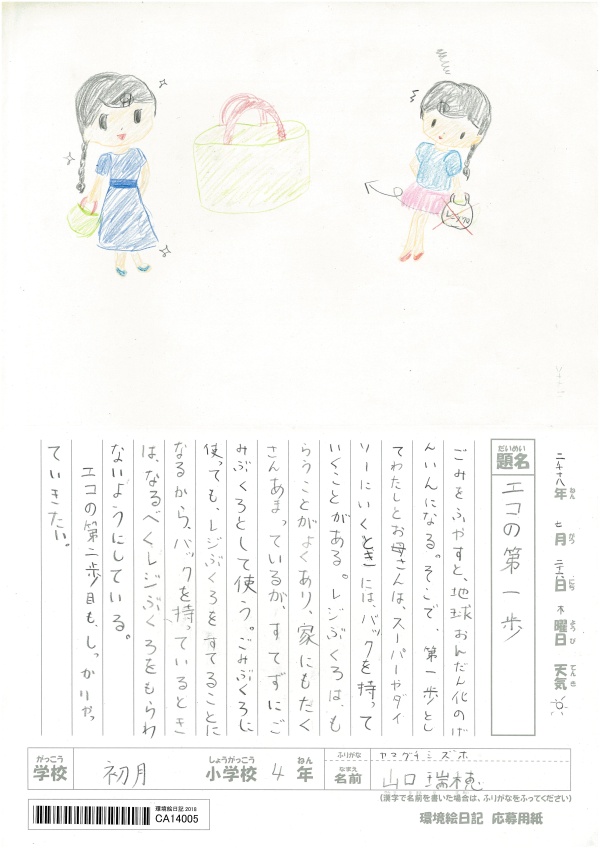 レジブクロ
二千十八年 七月 二十六日 木曜日 天気
ねん がつ にち ようび てんき
だいめい
題名 エコの第一歩
ごみをふやすと、地球おんだん化のげ
んいんになる。そこで、第一歩とし
てわたしとお母さんは、スーパーやダイ
ソーにいくときには、バックを持って
いくことがある。レジぶくろは、も
らうことがよくあり、家にもたく
さんあまっているが、すてずにご
みぶくろとして使う。ごみぶくろに
使っても、レジぶくろをすてることに
なるから、バックを持っているとき
は、なるべくレジぶくろをもらわ
ないようにしている。
エコの第二歩目も、しっかりやっ
ていきたい。
がっこう しょうがっこう ねん
学校 初月 小学校 4 年
ふりがな ヤマグチミズホ
なまえ
名前 山口瑞穂
(漢字で名前を書いた場合は、ふりがなをふってください)
環境絵日記 2018
CA14005
環境絵日記 応募用紙